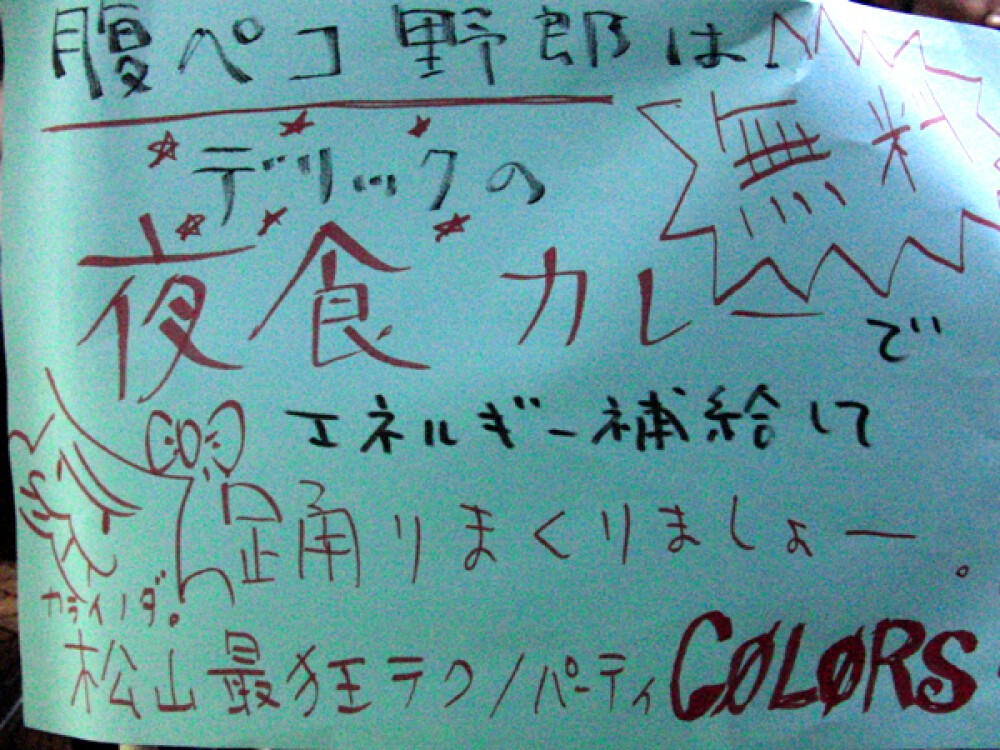 腹ペコ野郎は
無料
デリックの
夜食カレーで
エネルギー補給して
踊りまくりましょー。
カライノダ。
松山最狂テクノパーティ COLORS